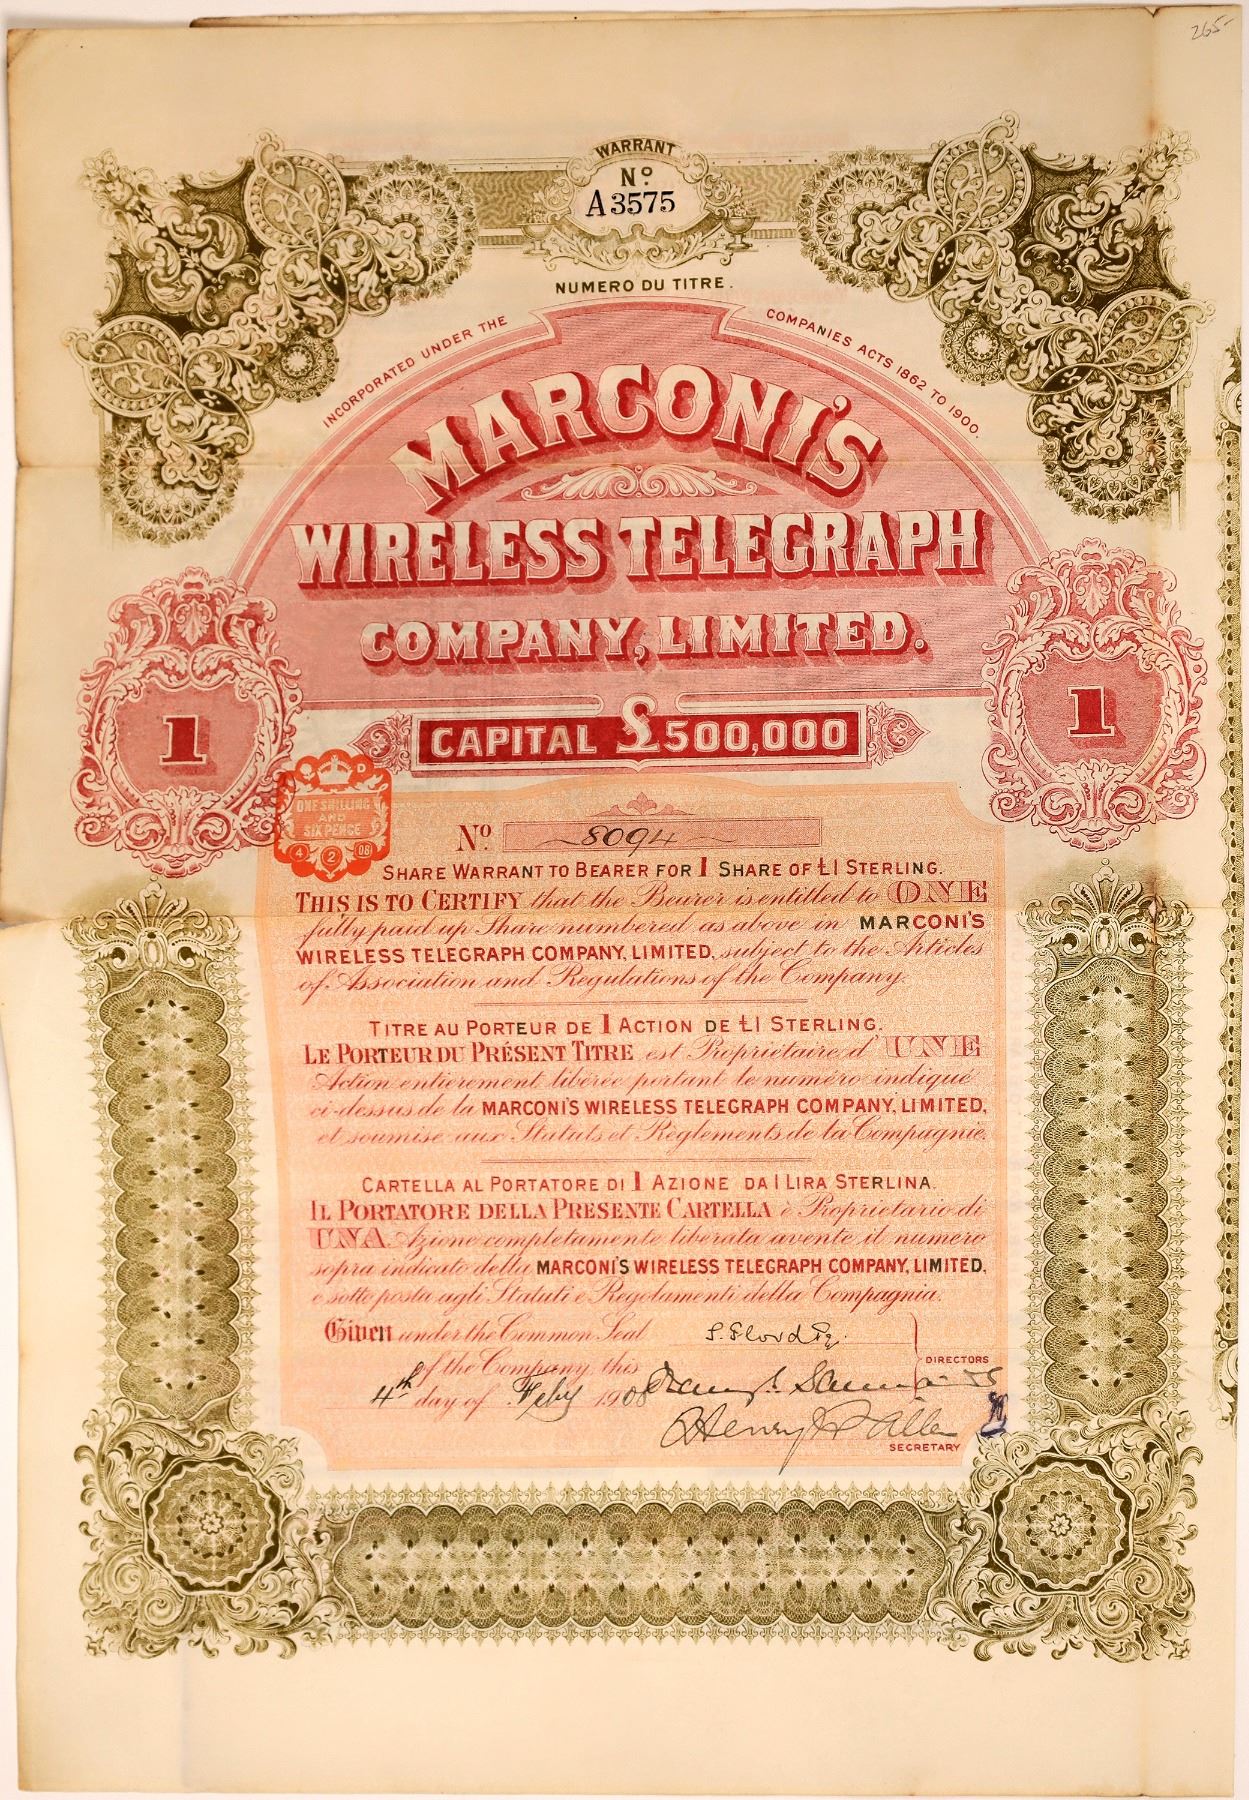 265-
WARRANT
No
A 3575
NUMERO DU TITRE.
INCORPORATED UNDER THE COMPANIES ACTS 1862 TO 1900.
MARCONI'S
WIRELESS TELEGRAPH
COMPANY, LIMITED.
1 1
CAPITAL £500,000
ONE SHILLING
AND
SIX PENCE
4 2 08
No. 8094
SHARE WARRANT TO BEARER FOR 1 SHARE OF £1 STERLING.
THIS IS TO CERTIFY that the Bearer is entitled to ONE
fully paid up Share numbered as above in MARCONI'S
WIRELESS TELEGRAPH COMPANY, LIMITED, subject to the Articles
of Association and Regulations of the Company.
TITRE AU PORTEUR DE 1 ACTION DE £1 STERLING.
LE PORTEUR DU PRÉSENT TITRE est Propriétaire d' UNE
Action entierement libérée portant le numéro indiqué
ci-dessus de la MARCONI'S WIRELESS TELEGRAPH COMPANY, LIMITED,
et soumise aux Statuts et Règlements de la Compagnie.
CARTELLA AL PORTATORE DI 1 AZIONE DA 1 LIRA STERLINA.
IL PORTATORE DELLA PRESENTE CARTELLA è Proprietario di
UNA Azione completamente liberata avente il numero
sopra indicato della MARCONI'S WIRELESS TELEGRAPH COMPANY, LIMITED,
e sotto posta agli Statuti e Regolamenti della Compagnia.
Given under the Common Seal
of the Company, this
4th day of Feby 1908
DIRECTORS
Henry W Allen
SECRETARY